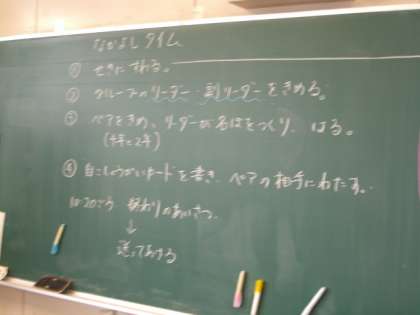 なかよしタイム
① せきにすわる。
② グループのリーダー・副リーダーをきめる。
③ ペアをきめ、リーダーが名ぼをつくり、はる。
④ 自こしょうかいカードを書き、ペアの相手にわたす。
10:20ごろ 終わりのあいさつ
↓
送ってあげる